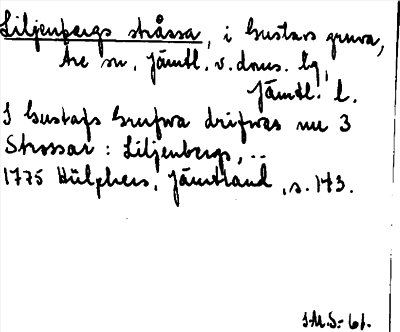 Liljenbergs stråssa, i Gustavs gruva,
Åre sn, Jämtl. v. doms. lg,
Jämtl. l.
I Gustafs Grufwa drifwas nu 3
Strossar: Liljenbergs, ..
1775 Hülphers, Jämtland, s. 143.
I.M.S-61.